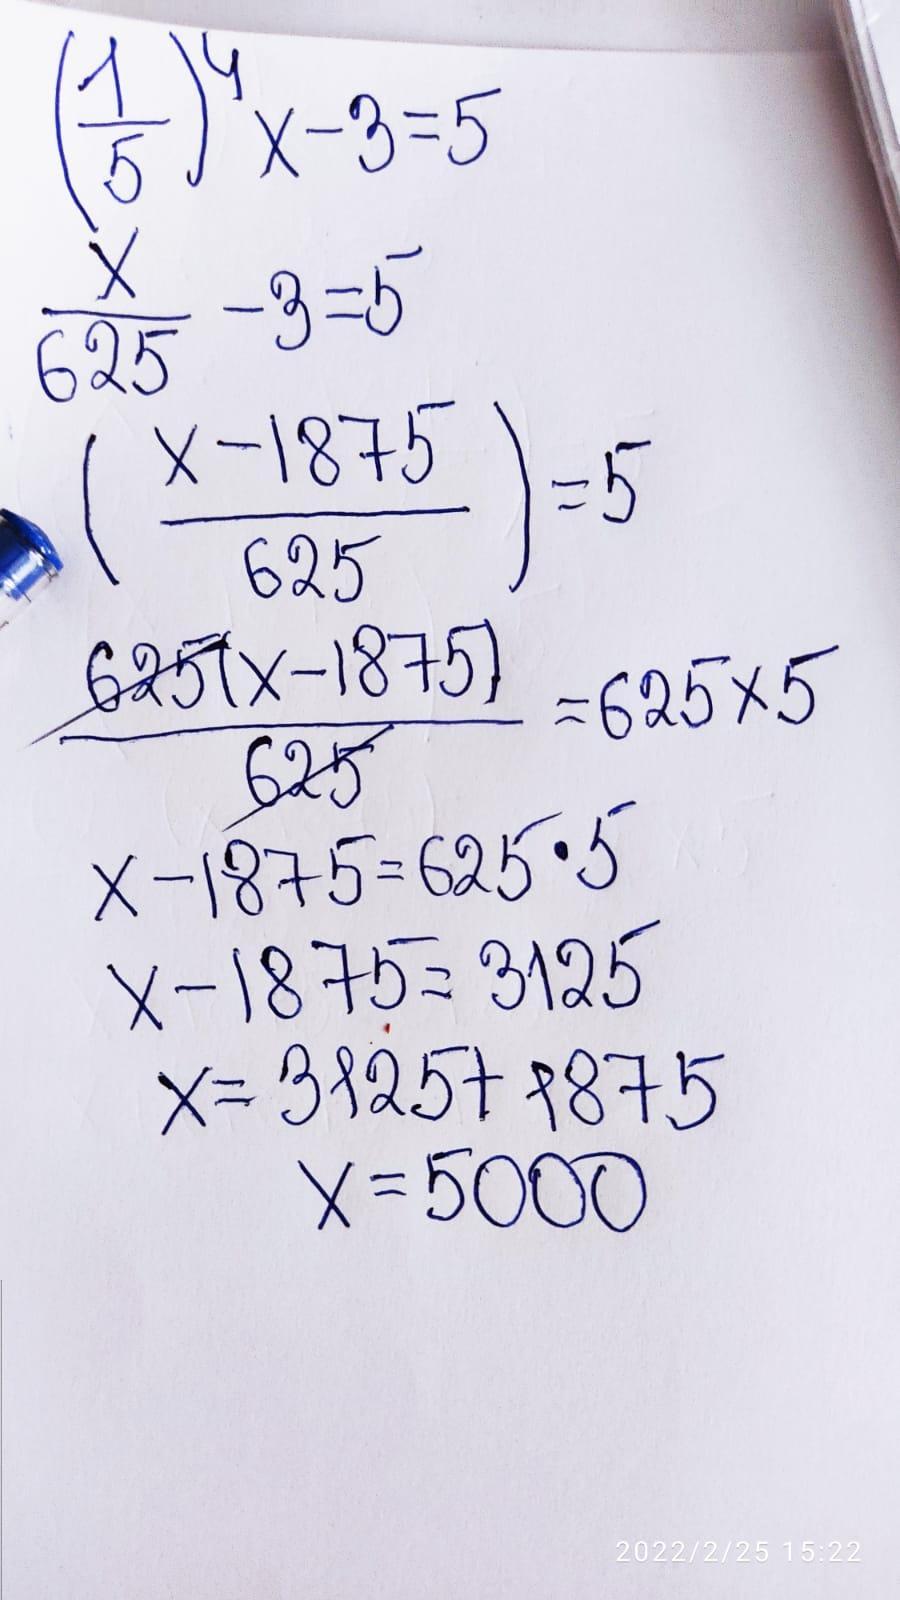 (1/5)⁴ x-3=5
x/625 -3=5
(x-1875/625)=5
625(x-1875)/625 =625×5
x-1875=625•5
x-1875=3125
x=3125+1875
x=5000
2022/2/25 15:22